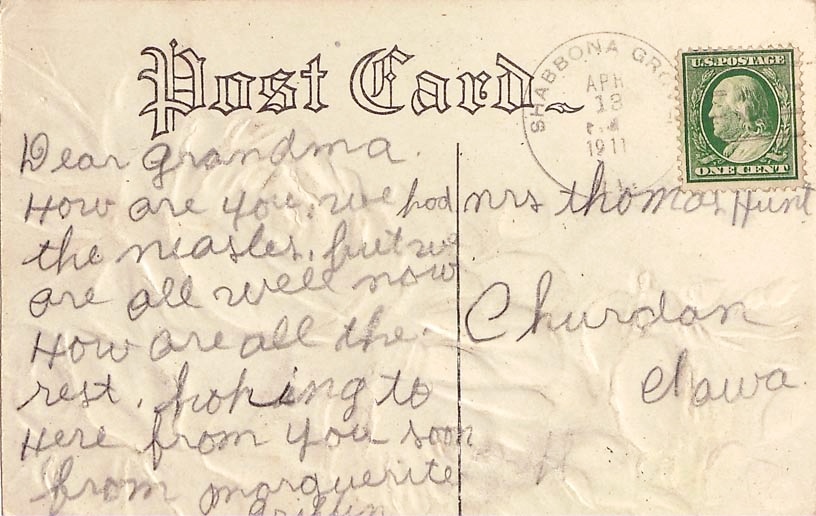 Post Card
SHABBONA GROVE
APR
13
P.M
1911
U.S. POSTAGE
ONE CENT
Dear grandma.
How are you, we had
the measles, but we
are all well now
How are all the
rest. hoping to
Here from you soon
from marguerite
Griffin
mrs thomas Hunt
Churdan
Iowa.